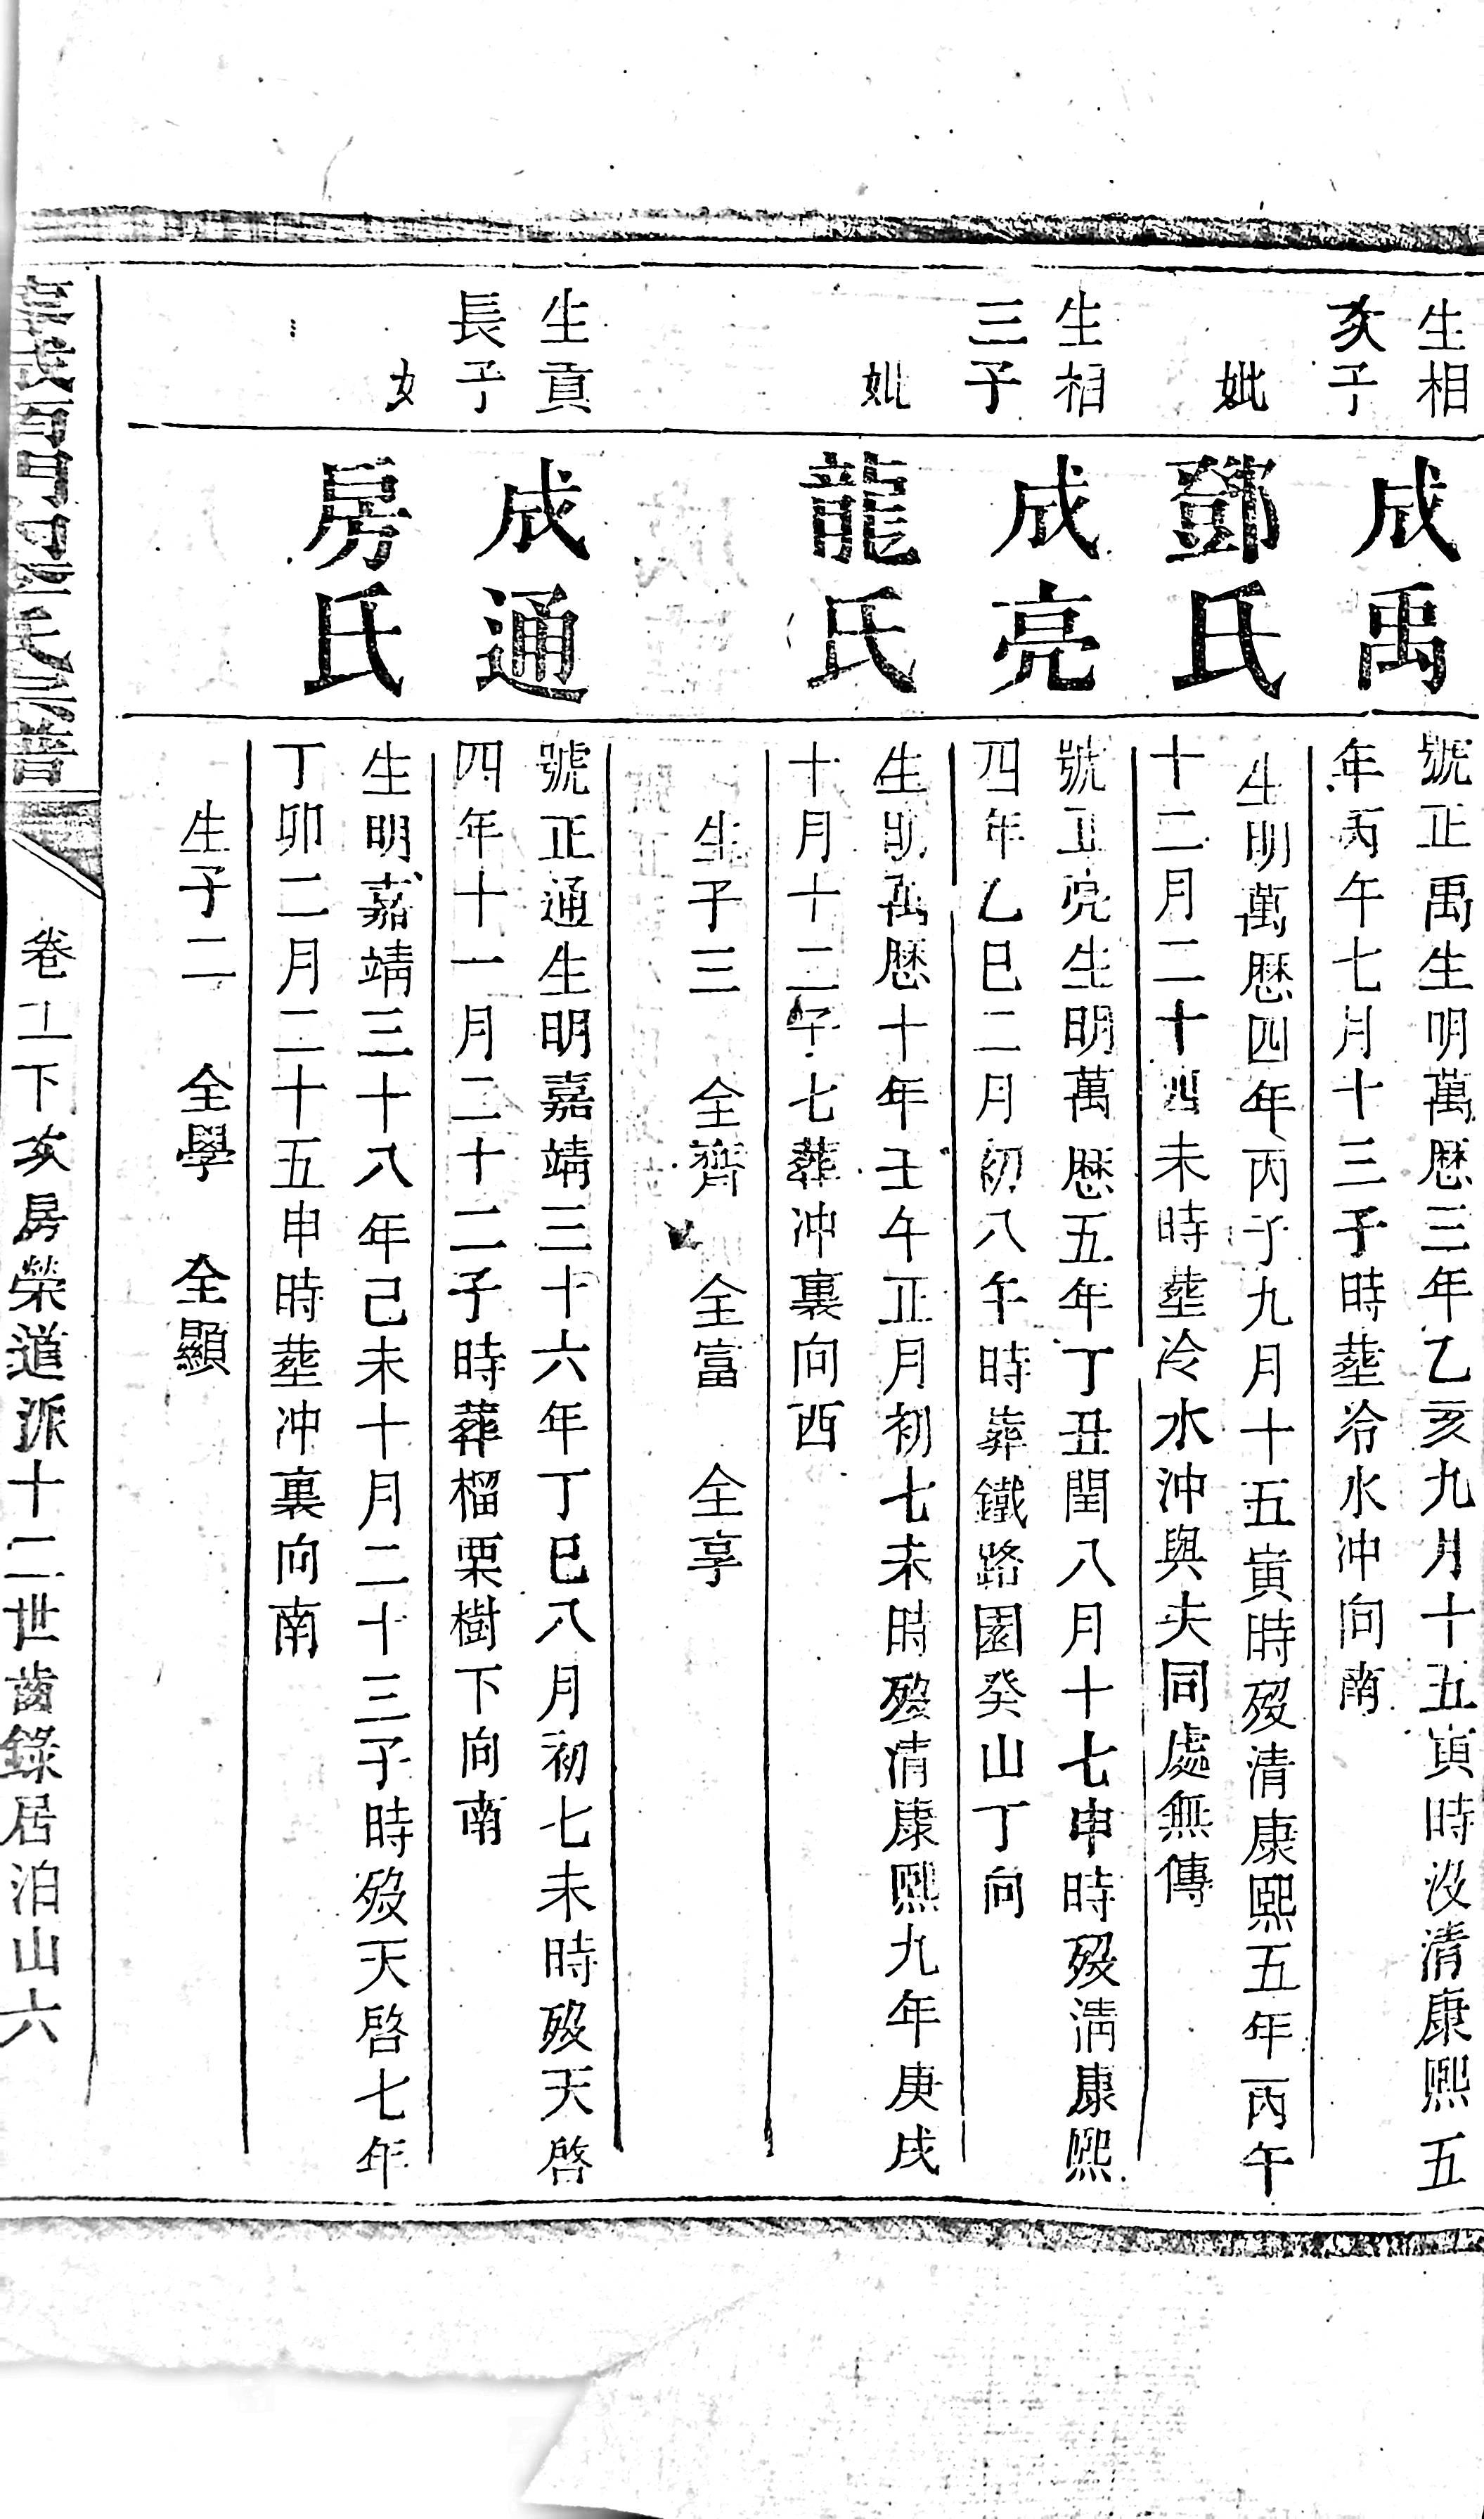 生相
亥子
妣
成禹
號正禹生明萬歷三年乙亥九月十五寅時没清康熙五
年丙午七月十三子時塟冷水冲向南
鄧氏
生明萬歷四年丙子九月十五寅時殁清康熙五年丙午
十二月二十四未時塟冷水冲與夫同處無傳
生相
三子
妣
成亮
號正亮生明萬歷五年丁丑閏八月十七申時殁清康熙
四年乙巳二月初八午時葬鐵路園癸山丁向
龍氏
生明萬歷十年壬午正月初七未時殁清康熙九年庚戌
十月十二午七葬冲裏向西
生子三 全齊 全富 全享
生貢
長子
成通
號正通生明嘉靖三十六年丁巳八月初七未時殁天啓
四年十一月二十二子時葬榴栗樹下向南
房氏
生明嘉靖三十八年己未十月二十三子時殁天啓七年
丁卯二月二十五申時塟冲裏向南
生子二 全學 全顯
氏 普
卷 下亥房榮道派十二世齒錄居泊山六